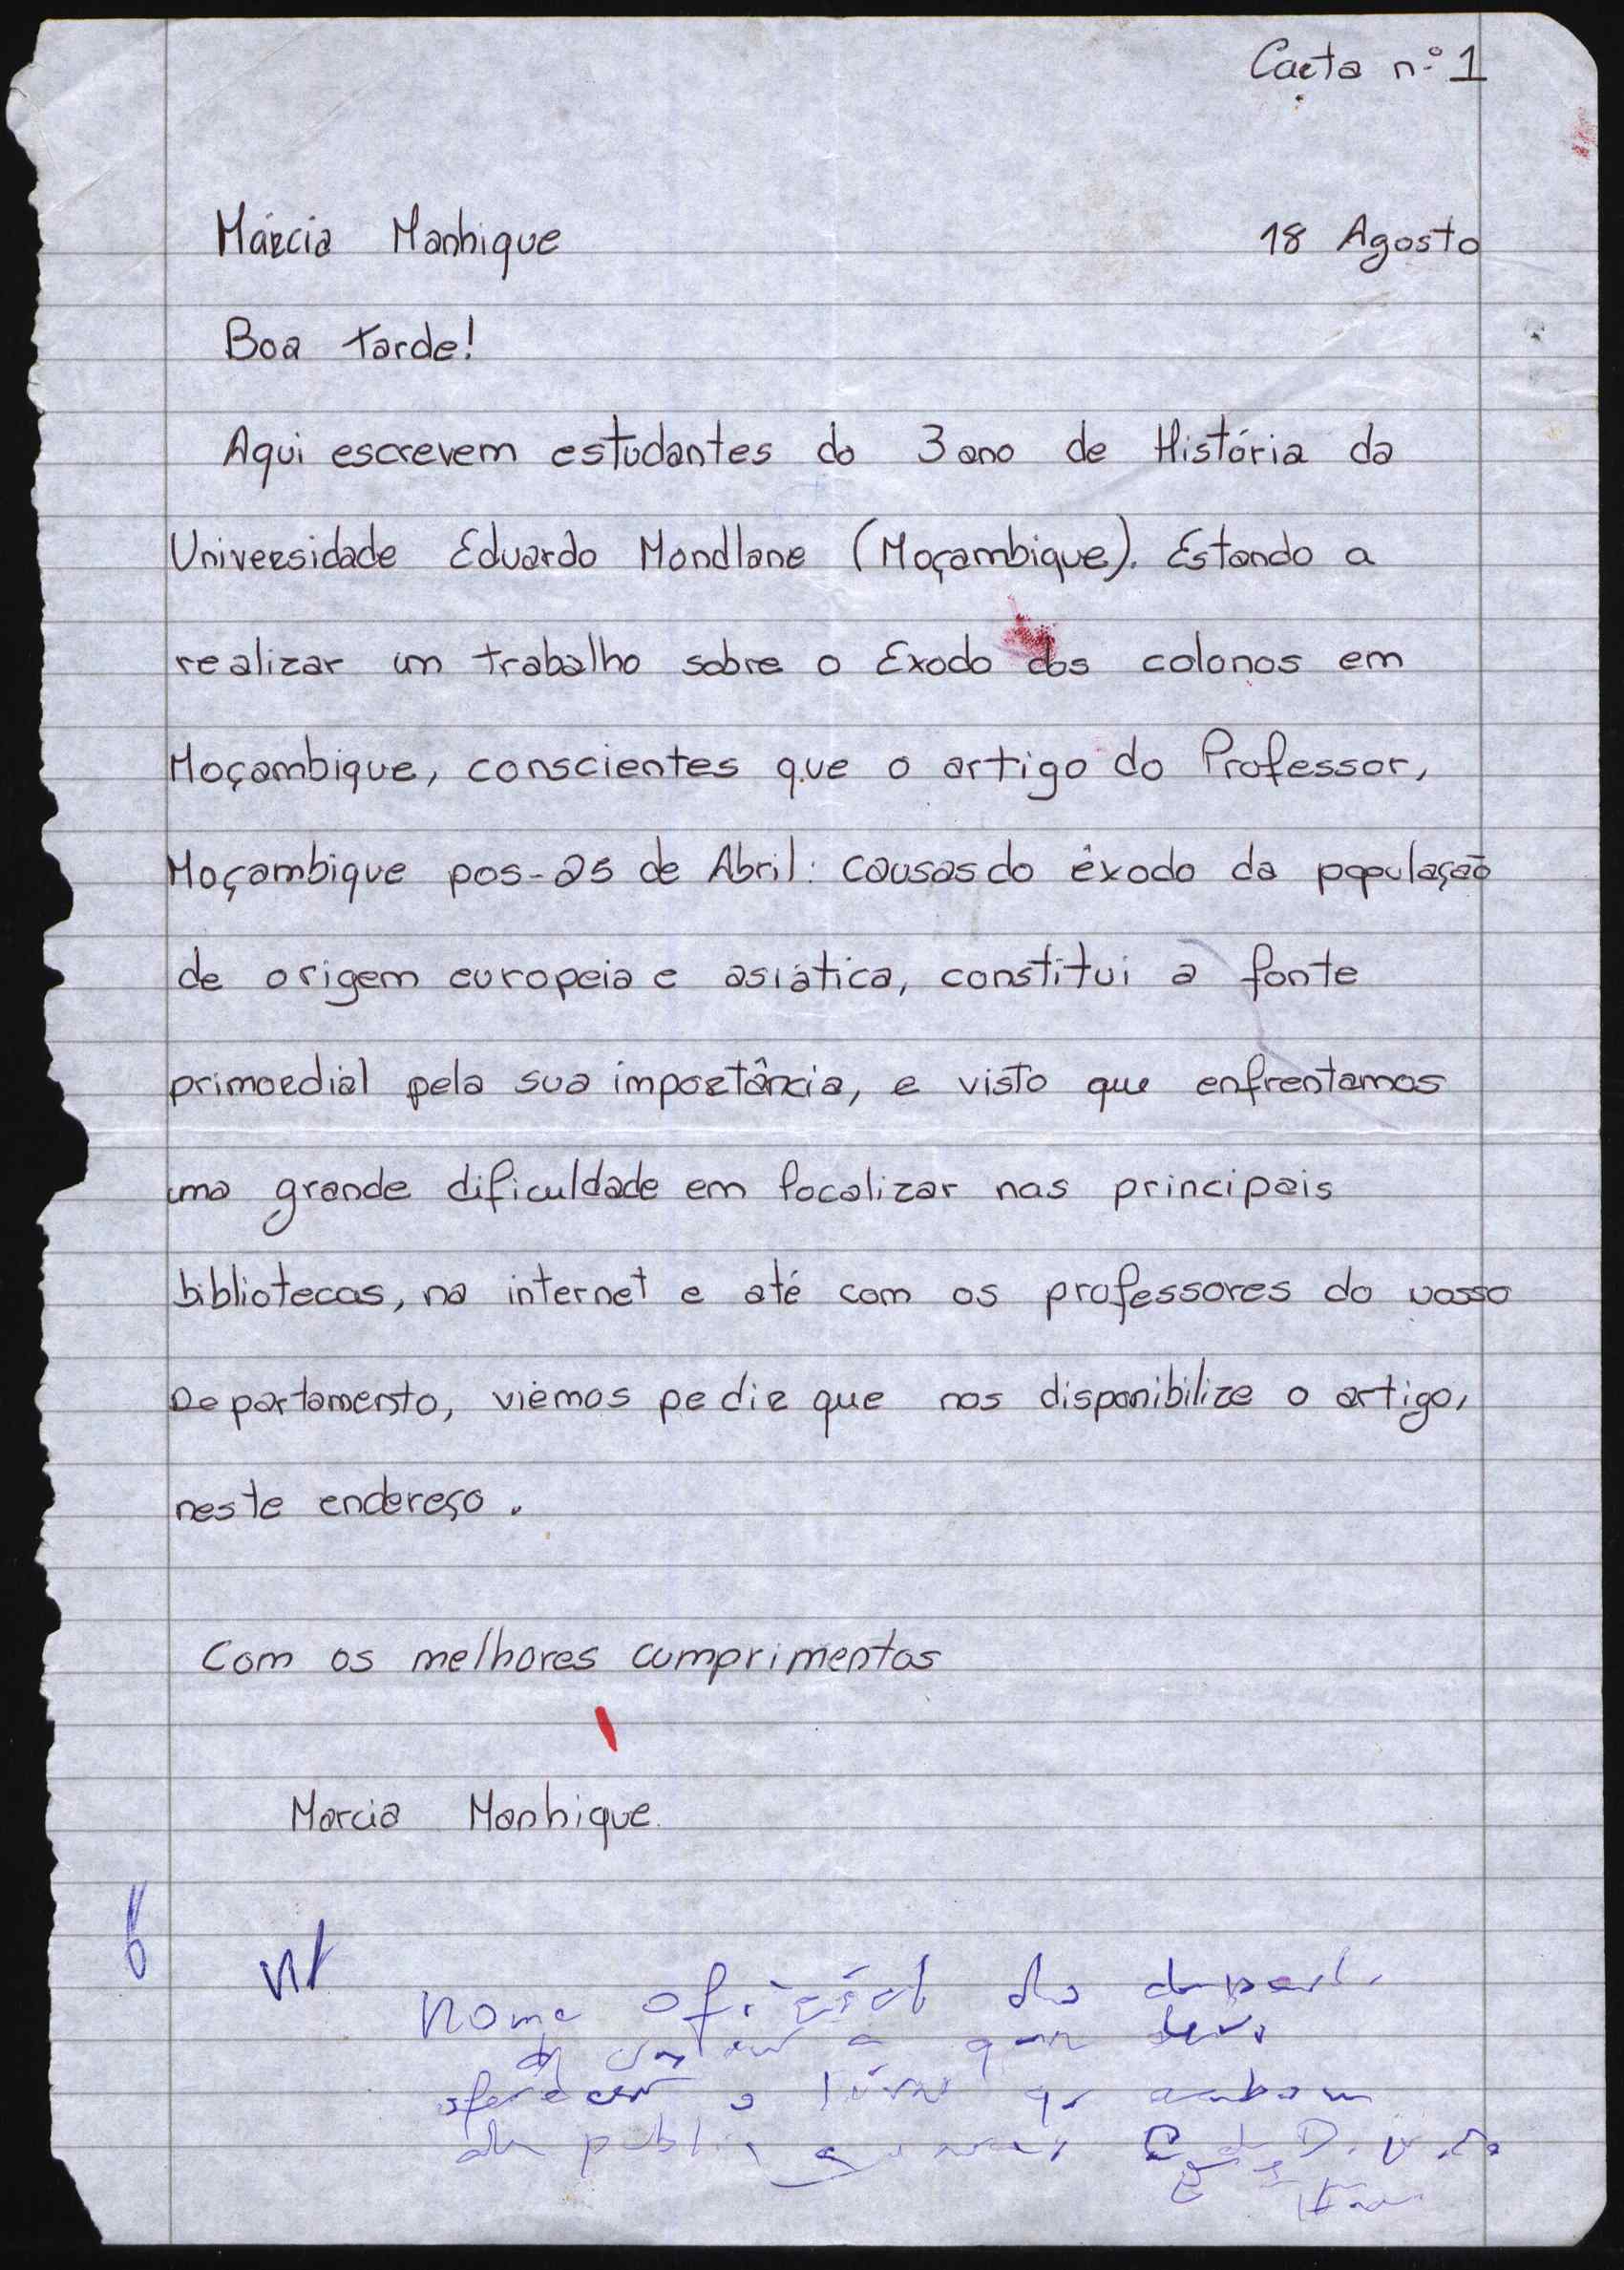 Carta nº 1
Márcia Manhique 18 Agosto
Boa tarde!
Aqui escrevem estudantes do 3 ano de História da
Universidade Eduardo Mondlane (Moçambique). Estando a
realizar um trabalho sobre o Exodo dos colonos em
Moçambique, conscientes que o artigo do Professor,
Moçambique pos-25 de Abril: causas do êxodo da população
de origem europeia e asiática, constitui a fonte
primordial pela sua importância, e visto que enfrentamos
uma grande dificuldade em localizar nas principais
bibliotecas, na internet e até com os professores do vosso
Departamento, viemos pedir que nos disponibilize o artigo,
neste endereço.
Com os melhores cumprimentos
Marcia Manhique.
Nome oficial do